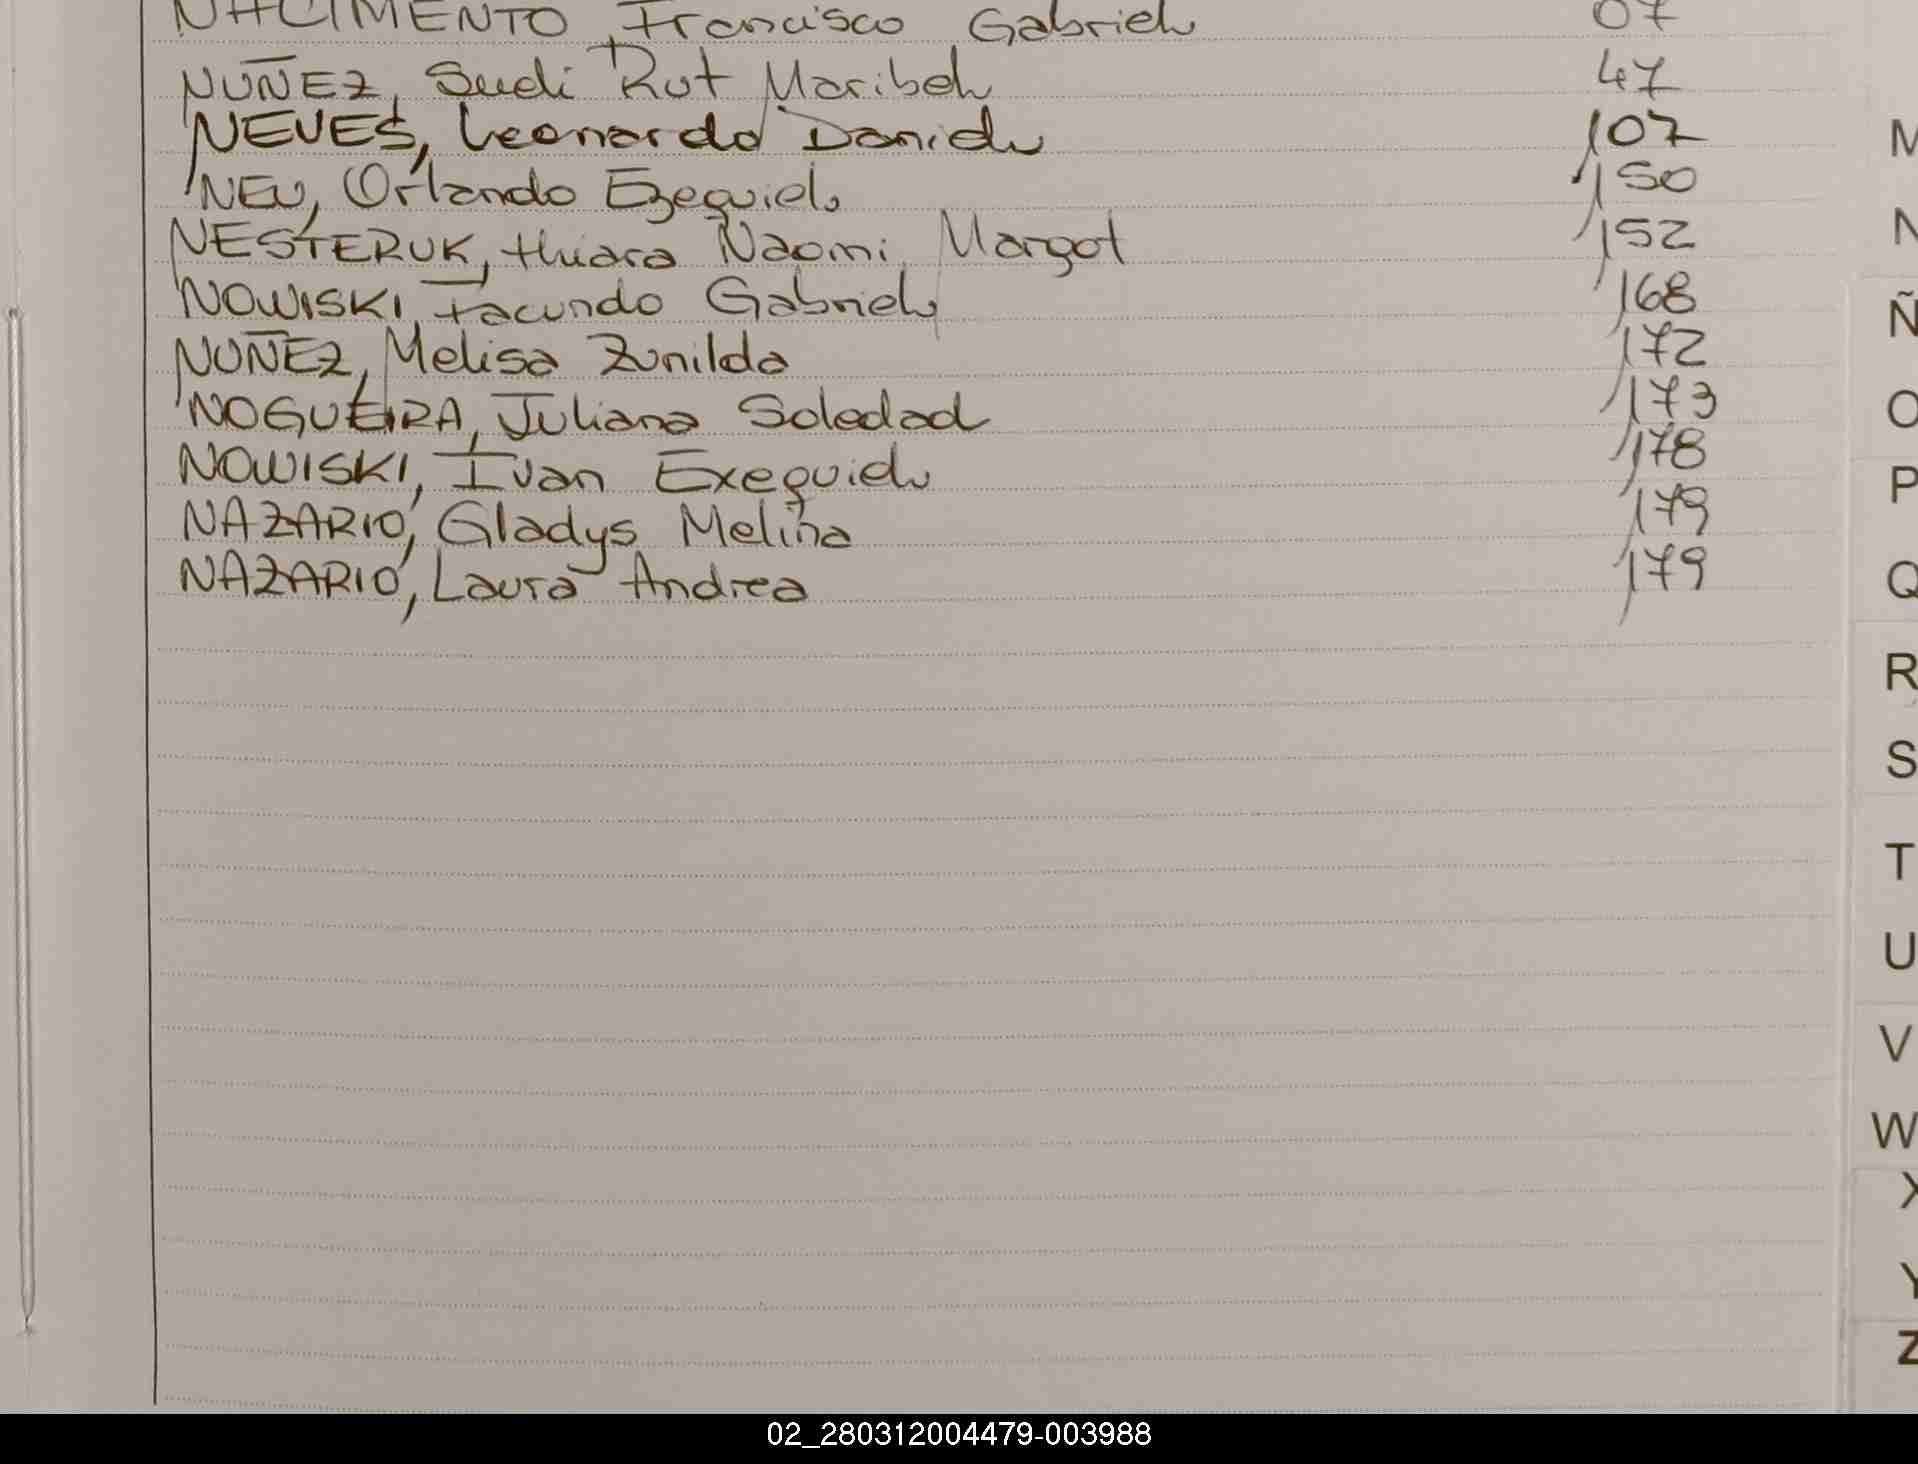 NACIMENTO, Francisco Gabriel 07
NUÑEZ, Sudi Rut Maribel 47
NEVES, Leonardo Daniel 107
NEU, Orlando Ezequiel 150
NESTERUK, thiara Naomi Margot 152
NOWISKI, Facundo Gabriel 168
NUÑEZ, Melisa Zunilda 172
NOGUEIRA, Juliana Soledad 173
NOWISKI, Ivan Exequiel 178
NAZARIO, Gladys Melina 179
NAZARIO, Laura Andrea 179
M
N
Ñ
O
P
Q
R
S
T
U
V
W
X
Y
Z
02_280312004479-003988